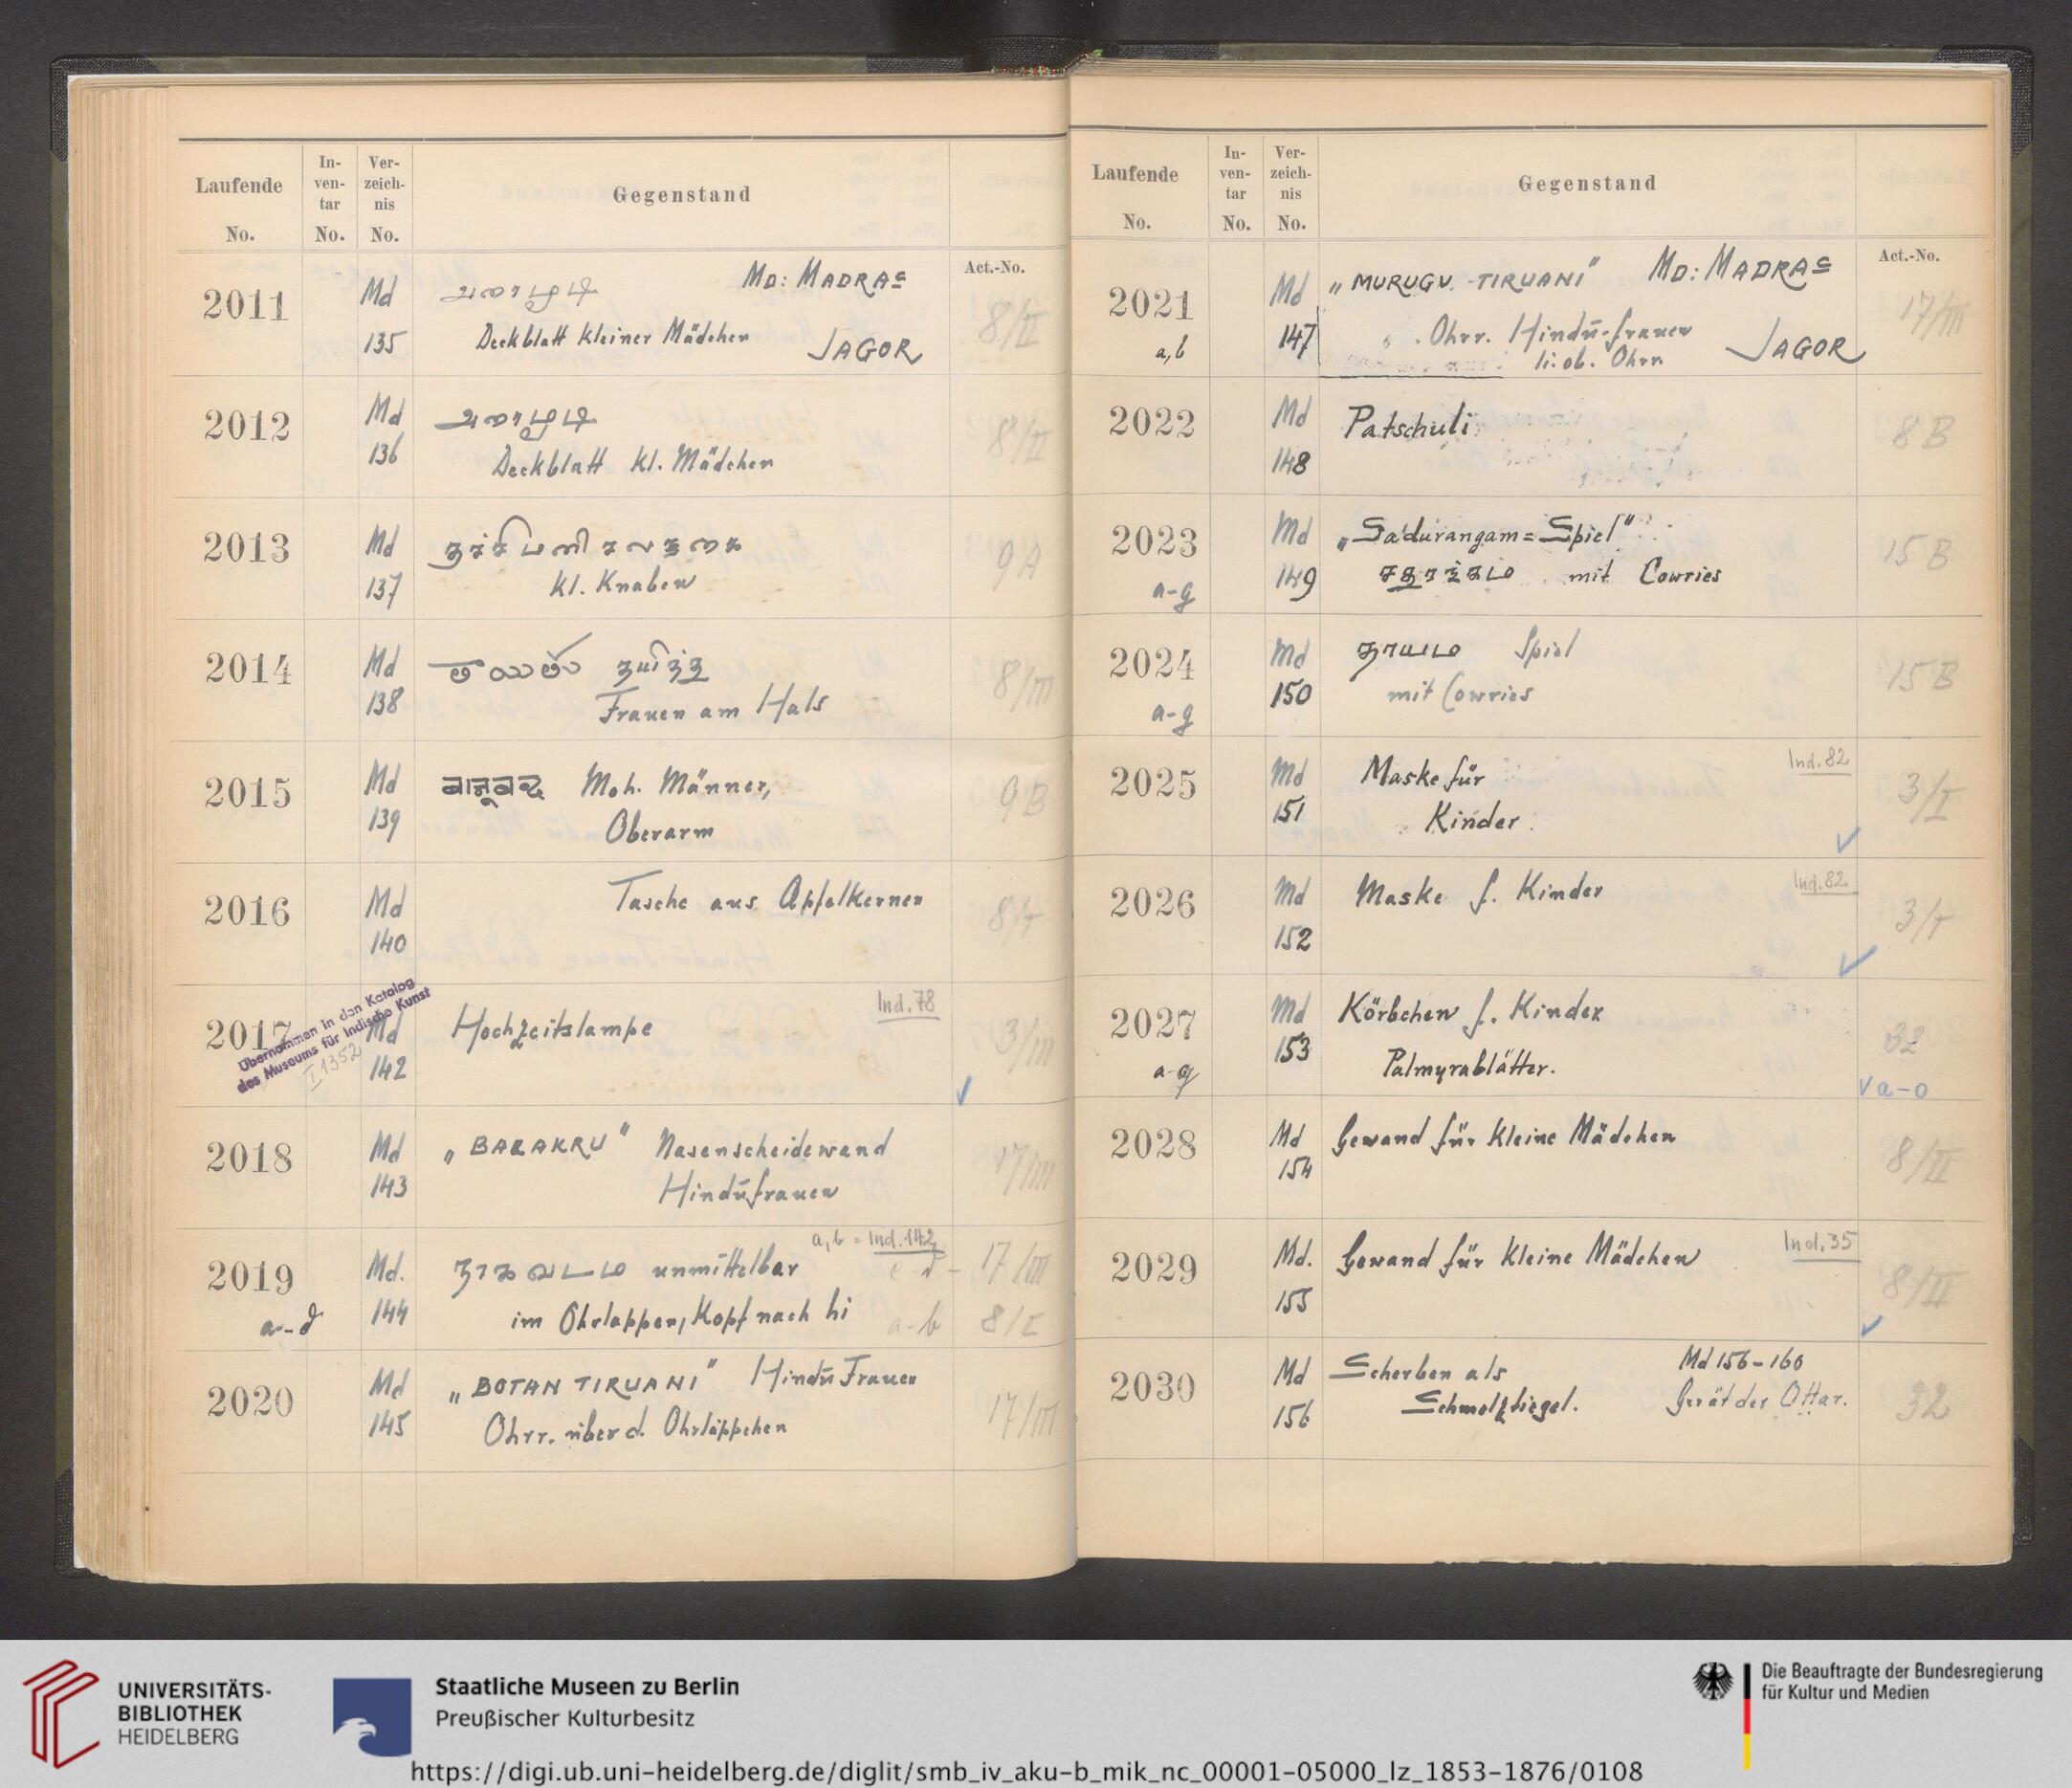 Laufende No.
In-ven-tar No.
Ver-zeich-nis No.
Gegenstand
Act.-No.
2011
Md 135
MD: MADRAS
Deckblatt kleiner Mädchen JAGOR
8/II
2012
Md 136
Deckblatt kl. Mädchen
8/II
2013
Md 137
kl. Knaben
9A
2014
Md 138
Frauen am Hals
8/III
2015
Md 139
Moh. Männer,
Oberarm
9B
2016
Md 140
Tasche aus Apfelkernen
2017
Md 142
Hochzeitslampe
Ind. 78
3/III
Übernommen in den Katalog
des Museums für Indische Kunst
I 1352
2018
Md 143
„BARAKRU“ Nasenscheidewand
Hindūfrauen
17/III
2019
a-d
Md. 144
a, b = Ind. 142
unmittelbar
im Ohrlappen, Kopf nach hi
c d - 17/III
a-b 8/I
2020
Md 145
„BOTAN TIRUANI“ Hindū Frauen
Ohrr. über d. Ohrläppchen
17/III
Laufende No.
In-ven-tar No.
Ver-zeich-nis No.
Gegenstand
Act.-No.
2021
a, b
Md 147
„MURUGU TIRUANI“ MD: MADRAS
Ohrr. Hindū-frauen
li. ob. Ohrr JAGOR
17/III
2022
Md 148
Patschuli
8B
2023
a-g
Md 149
„Sa'durangam=Spiel“
mit Cowries
15B
2024
a-g
Md 150
தாயம் Spiel
mit Cowries
15B
2025
Md 151
Maske für
Kinder
Ind. 82
3/I
2026
Md 152
Maske f. Kinder
Ind. 82
3/I
2027
a-g
Md 153
Körbchen f. Kinder
Palmyrablätter.
32
a-o
2028
Md 154
Gewand für kleine Mädchen
8/II
2029
Md. 155
Gewand für kleine Mädchen
Ind. 35
8/II
2030
Md 156
Scherben als
Schmelztiegel.
Md 156-160
Gerät der Ottar.
32
UNIVERSITÄTS-
BIBLIOTHEK
HEIDELBERG
Staatliche Museen zu Berlin
Preußischer Kulturbesitz
Die Beauftragte der Bundesregierung
für Kultur und Medien
https://digi.ub.uni-heidelberg.de/diglit/smb_iv_aku-b_mik_nc_00001-05000_lz_1853-1876/0108